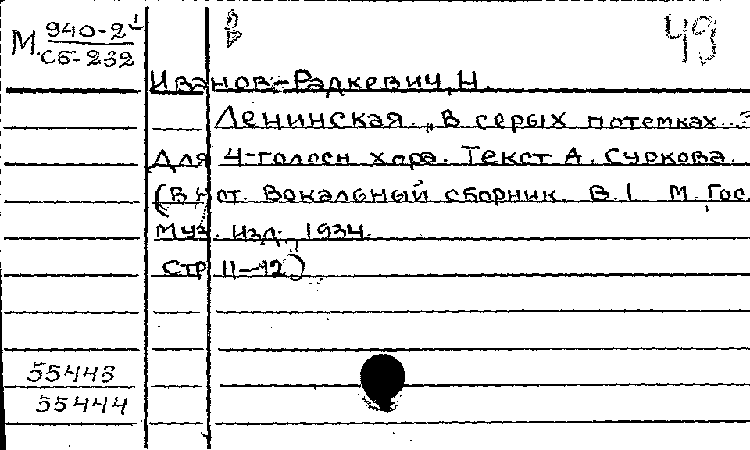 М. 940-2¹
Сб-232
В
49
Иванов-Радкевич, Н.
Ленинская. „В серых потемках...
Для 4-голосн хора. Текст А. Суркова.
(В нот. Вокальный сборник. В. 1. М. Гос.
Муз. изд., 1934.
стр 11-12)
55443
55444